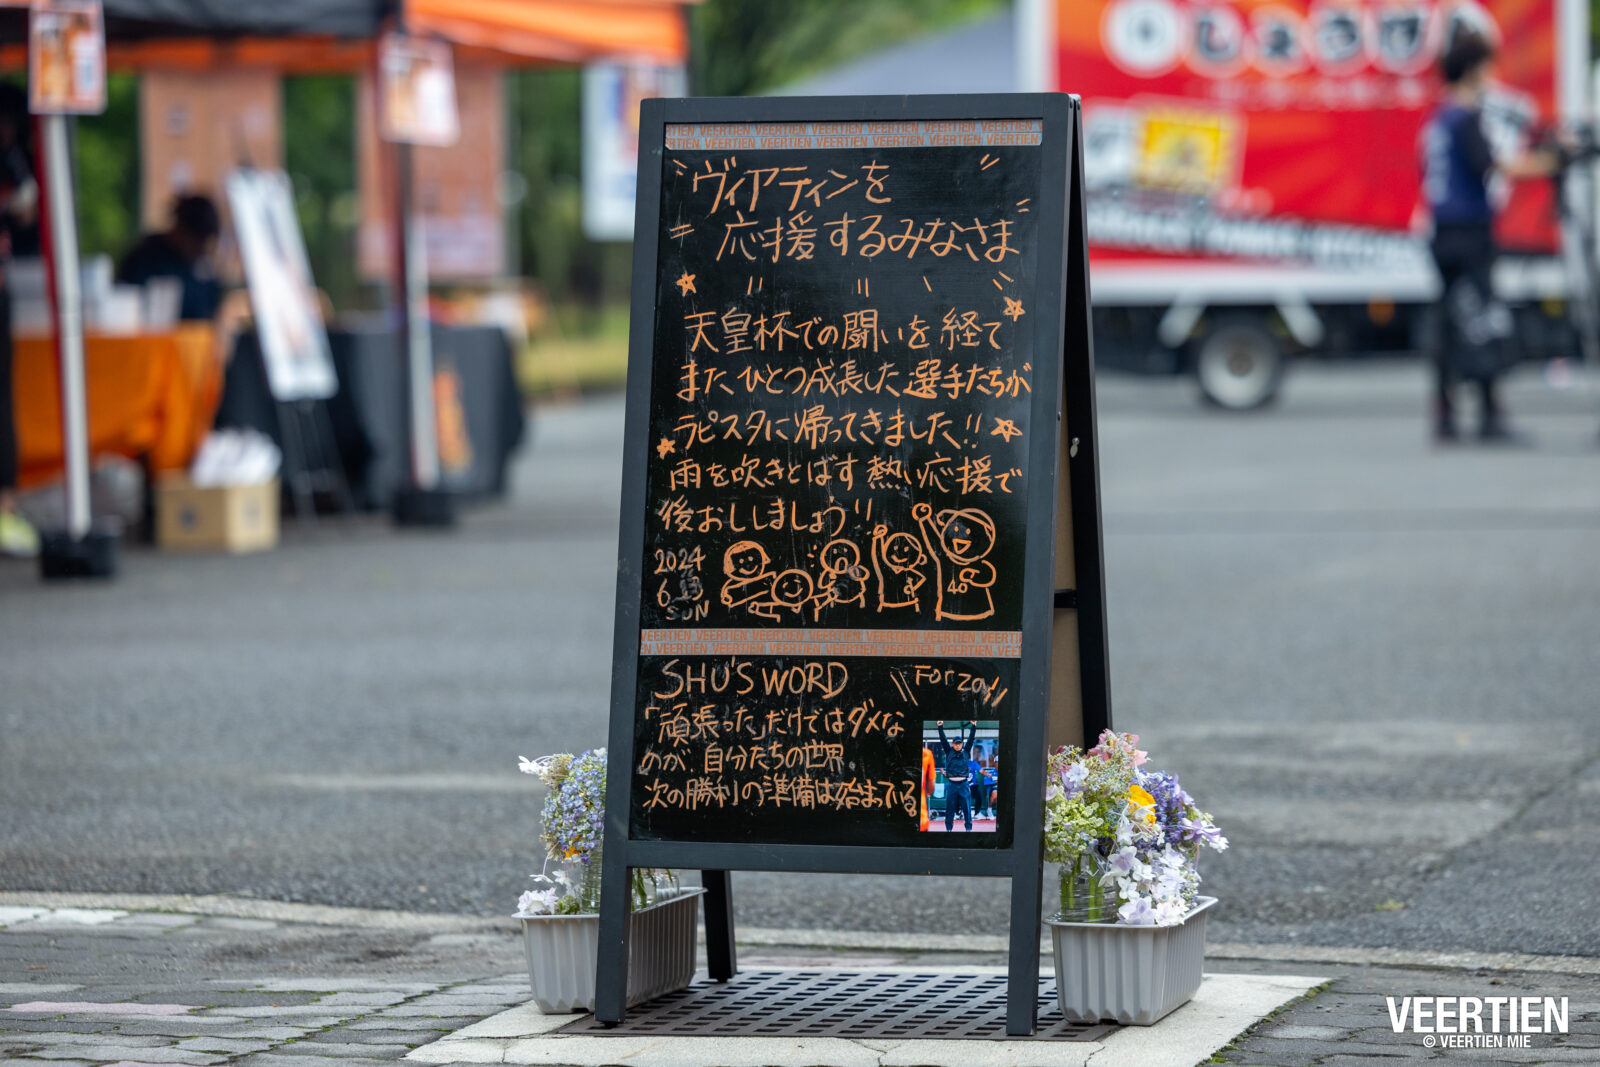 VEERTIEN VEERTIEN VEERTIEN VEERTIEN VEERTIEN VEERTIEN
VEERTIEN VEERTIEN VEERTIEN VEERTIEN VEERTIEN VEERTIEN
ヴィアティンを
応援するみなさま
天皇杯での闘いを経て
また、ひとつ成長した選手たちが
ラピスタに帰ってきました!!
雨を吹きとばす熱い応援で
後おししましょう!!
2024
6
SUN
40
VEERTIEN VEERTIEN VEERTIEN VEERTIEN VEERTIEN VEERTIEN
VEERTIEN VEERTIEN VEERTIEN VEERTIEN VEERTIEN VEERTIEN
SHU'S WORD
「頑張った」だけではダメな
のが、自分たちの世界。
次の勝利の準備は始まっている。
しょうび
VEERTIEN
© VEERTIEN MIE